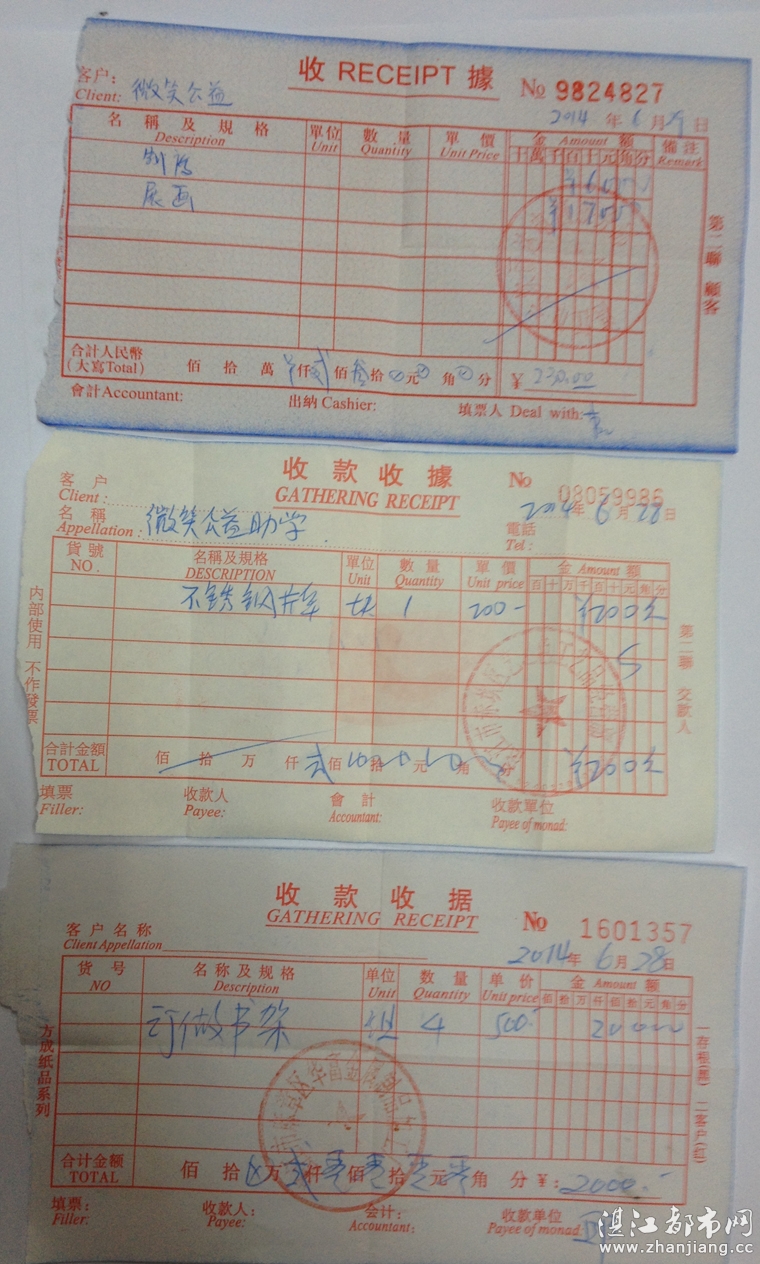 收 RECEIPT 據
客户:
Client: 微笑公益
No 9824827
2014 年 6 月 29 日
名 稱 及 規 格 單位 數 量 單 價 金 Amount 額 備 注
Description Unit Quantity Unit Price 十萬千百十元角分 Remark
¥60.00
展画 ¥170.00
第二聯 顧客
合計人民幣
(大寫Total) 佰 拾 萬 仟 贰 佰 叁 拾 0 元 0 角 0 分 ¥ 230.00
會計Accountant: 出納 Cashier: 填票人 Deal with:
收 款 收 據
GATHERING RECEIPT
No 08059986
客 户
Client :
2014 年 6 月 28 日
名 稱
Appellation : 微笑公益助学
電話
Tel :
貨 號 名稱及規格 單位 數 量 單 價 金 Amount 額
NO. DESCRIPTION Unit Quantity Unit price 百十万千百十元角分
不锈钢 块 1 200- ¥200元
内部使用 不作發票
第二聯 交款人
合計金額
TOTAL 佰 拾 万 仟 贰 佰 拾 元 角 分 ¥200元
填票 收款人 會 計 收款單位
Filler: Payee: Accountant: Payee of monad:
收 款 收 据
GATHERING RECEIPT
No 1601357
客 户 名 称
Client Appellation
2014 年 6 月 28 日
货 号 名 称 及 规 格 单位 数 量 单 价 金 Amount 额
NO Description Unit Quantity Unit price 佰拾万仟佰拾元角分
订做书架 组 4 500.- 200000
方成纸品系列
一存根(黑) 二客户(红)
合计金额
TOTAL 佰 拾 万 贰 仟 零 佰 零 拾 零 元 零 角 分 ¥: 2000.-
填票: 收款人: 会计: 收款单位
Filler: Payee: Accountant: Payee of monad:
湛江都市网
www.zhanjiang.cc